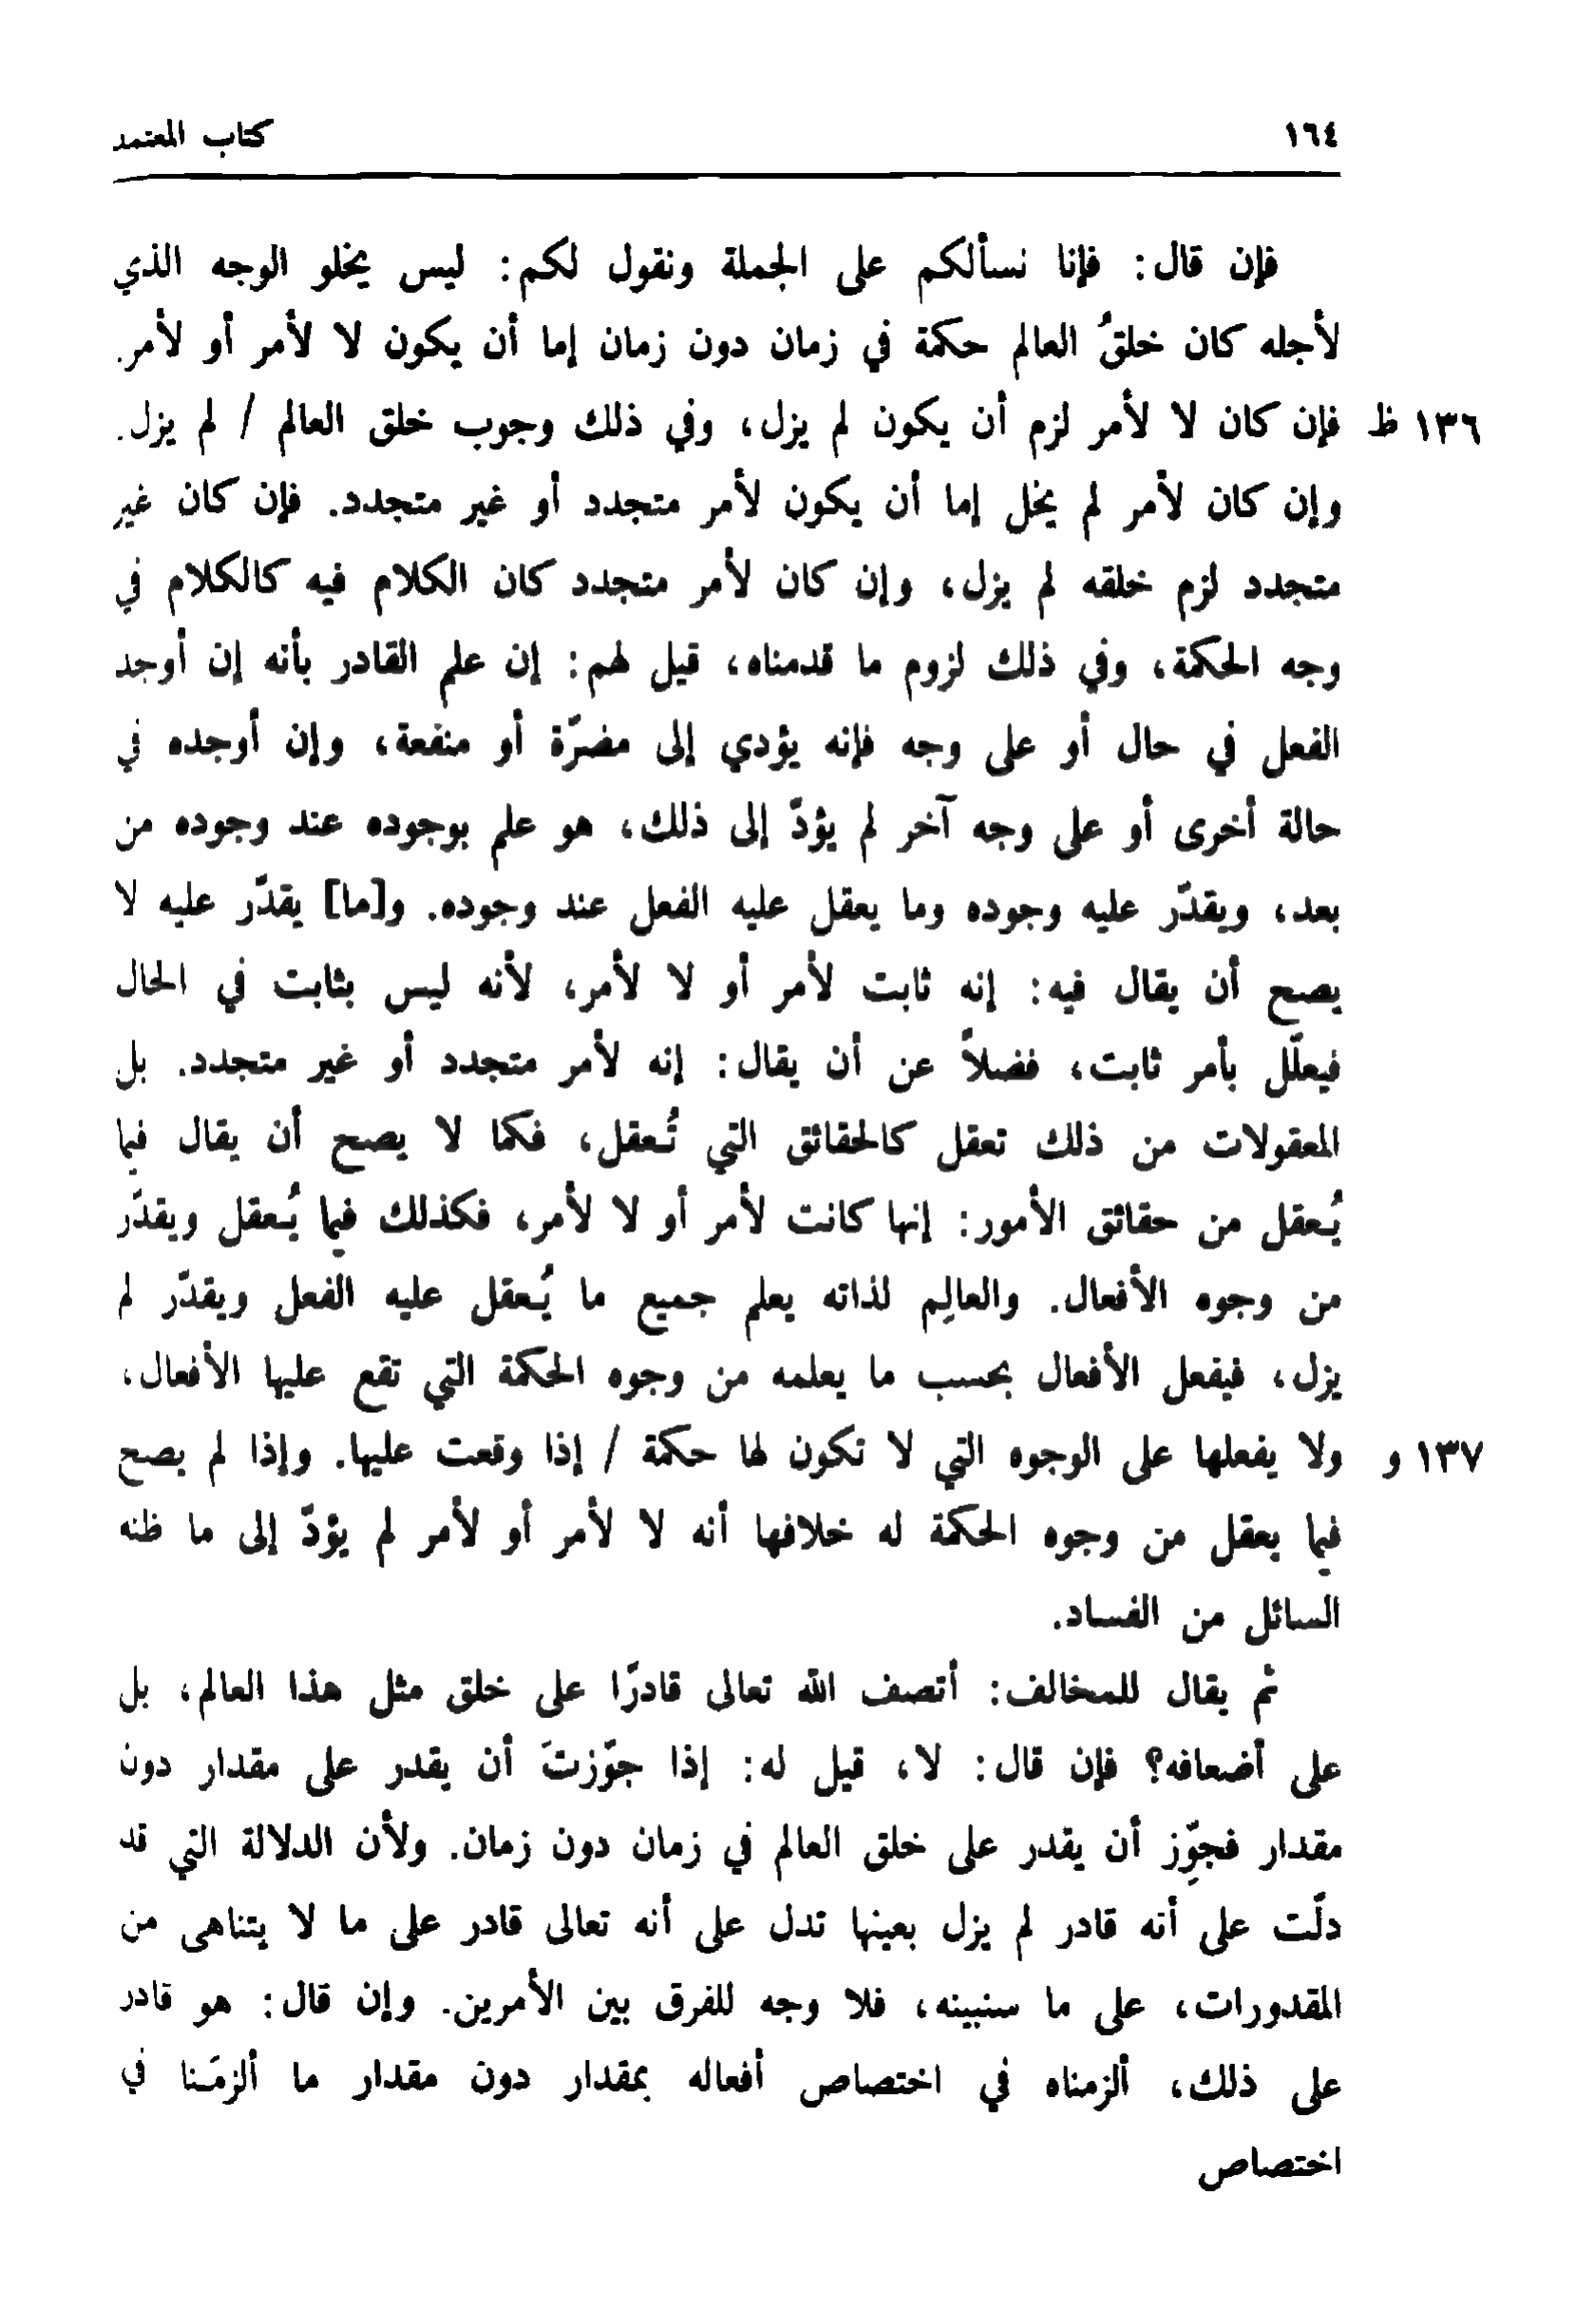 ١٦٤ كتاب المعتمد
فإن قال: فإنا نسألكم على الجملة ونقول لكم: ليس يخلو الوجه الذي
لأجله كان خلقُ العالم حكمة في زمان دون زمان إما أن يكون لا لأمر أو لأمر.
١٣٦ ظ فإن كان لا لأمر لزم أن يكون لم يزل، وفي ذلك وجوب خلق العالم / لم يزل.
وإن كان لأمر لم يخل إما أن يكون لأمر متجدد أو غير متجدد. فإن كان غير
متجدد لزم خلقه لم يزل، وإن كان لأمر متجدد كان الكلام فيه كالكلام في
وجه الحكمة، وفي ذلك لزوم ما قدمناه، قيل لهم: إن علم القادر بأنه إن أوجد
الفعل في حال أو على وجه فإنه يؤدي إلى مضرّة أو منفعة، وإن أوجده في
حالة أخرى أو على وجه آخر لم يؤدّ إلى ذلك، هو علم بوجوده عند وجوده من
بعد، ويقدّر عليه وجوده وما يعقل عليه الفعل عند وجوده. و[ما] يقدّر عليه لا
يصح أن يقال فيه: إنه ثابت لأمر أو لا لأمر، لأنه ليس بثابت في الحال
فيعلّل بأمر ثابت، فضلاً عن أن يقال: إنه لأمر متجدد أو غير متجدد. بل
المعقولات من ذلك تعقل كالحقائق التي تُعقل، فكما لا يصح أن يقال فيما
يُعقل من حقائق الأمور: إنها كانت لأمر أو لا لأمر، فكذلك فيما يُعقل ويقدّر
من وجوه الأفعال. والعالِم لذاته يعلم جميع ما يُعقل عليه الفعل ويقدّر لم
يزل، فيفعل الأفعال بحسب ما يعلمه من وجوه الحكمة التي تقع عليها الأفعال،
١٣٧ و ولا يفعلها على الوجوه التي لا تكون لها حكمة / إذا وقعت عليها. وإذا لم يصح
فيما يعقل من وجوه الحكمة له خلافها أنه لا لأمر أو لأمر لم يؤدّ إلى ما ظنه
السائل من الفساد.
ثم يقال للمخالف: أتصف الله تعالى قادرًا على خلق مثل هذا العالم، بل
على أضعافه؟ فإن قال: لا، قيل له: إذا جوّزتَ أن يقدر على مقدار دون
مقدار فجوِّز أن يقدر على خلق العالم في زمان دون زمان. ولأن الدلالة التي قد
دلّت على أنه قادر لم يزل بعينها تدل على أنه تعالى قادر على ما لا يتناهى من
المقدورات، على ما سنبينه، فلا وجه للفرق بين الأمرين. وإن قال: هو قادر
على ذلك، ألزمناه في اختصاص أفعاله بمقدار دون مقدار ما ألزمَنا في
اختصاص